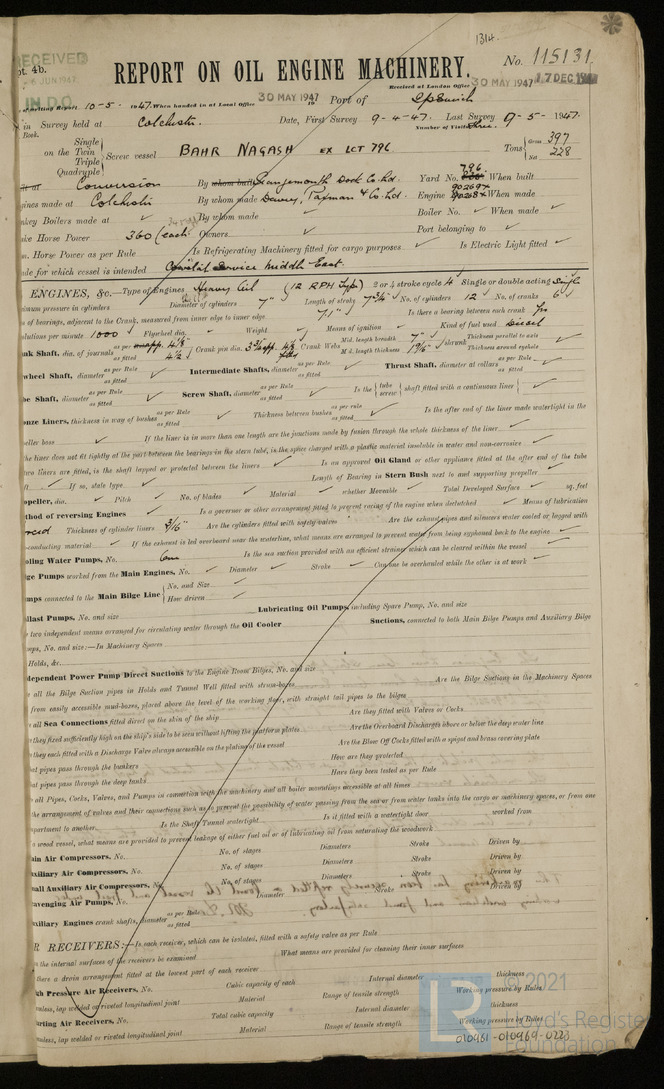 1314.
RECEIVED
pt. 4b.
6 JUN 1947
IN D.O.
REPORT ON OIL ENGINE MACHINERY.
No. 115131
Received at London Office 30 MAY 1947 17 DEC
writing Report 10-5-1947. When handed in at Local Office 30 MAY 1947 Port of Ipswich
in Survey held at Colchester. Date, First Survey 9-4-47. Last Survey 9-5-1947.
Book.
Number of Visits Three.
on the Single Twin Triple Quadruple Screw vessel BAHR NAGASH EX LCT 796 Tons Gross 397 Net 228
Conversion By whom built Grangemouth Dock Co Ltd. Yard No. 796 When built
gines made at Colchester By whom made Davey, Paxman & Co. Ltd. Engine When made
nkey Boilers made at By whom made Boiler No. When made
ke Horse Power 360 (each) Owners Port belonging to
m. Horse Power as per Rule Is Refrigerating Machinery fitted for cargo purposes Is Electric Light fitted
ade for which vessel is intended Coastal Service Middle East.
ENGINES, &c. Type of Engines Heavy Oil (12 RPH Type) 2 or 4 stroke cycle 4 Single or double acting Single
ximum pressure in cylinders Diameter of cylinders 7" Length of stroke 7 3/4" No. of cylinders 12 No. of cranks 6
n of bearings, adjacent to the Crank, measured from inner edge to inner edge 7.1" Is there a bearing between each crank Yes
olutions per minute 1000 Flywheel dia. Weight Means of ignition Kind of fuel used Diesel
nk Shaft, dia. of journals as per app. 4 1/2 as fitted 4 1/2 Crank pin dia. 3 3/4 Crank Webs Mid. length breadth 7" Mid. length thickness 1 9/16" shrunk Thickness parallel to axis Thickness around eyehole
wheel Shaft, diameter as per Rule as fitted Intermediate Shafts, diameter as per Rule as fitted Thrust Shaft, diameter at collars as per Rule as fitted
be Shaft, diameter as per Rule as fitted Screw Shaft, diameter as per Rule as fitted Is the tube screw shaft fitted with a continuous liner
onze Liners, thickness in way of bushes as per Rule as fitted Thickness between bushes as per rule as fitted Is the after end of the liner made watertight in the
peller boss If the liner is in more than one length are the junctions made by fusion through the whole thickness of the liner
he liner does not fit tightly at the part between the bearings in the stern tube, is the space charged with a plastic material insoluble in water and non-corrosive
two liners are fitted, is the shaft lapped or protected between the liners Is an approved Oil Gland or other appliance fitted at the after end of the tube
ft If so, state type Length of Bearing in Stern Bush next to and supporting propeller
opeller, dia. Pitch No. of blades Material whether Moveable Total Developed Surface sq. feet
thod of reversing Engines Is a governor or other arrangement fitted to prevent racing of the engine when declutched Means of lubrication
rced Thickness of cylinder liners 3/16" Are the cylinders fitted with safety valves Are the exhaust pipes and silencers water cooled or lagged with
-conducting material If the exhaust is led overboard near the waterline, what means are arranged to prevent water from being syphoned back to the engine
oling Water Pumps, No. One Is the sea suction provided with an efficient strainer which can be cleared within the vessel
ge Pumps worked from the Main Engines, No. Diameter Stroke Can one be overhauled while the other is at work
mps connected to the Main Bilge Line No. and Size How driven
llast Pumps, No. and size Lubricating Oil Pumps, including Spare Pump, No. and size
two independent means arranged for circulating water through the Oil Cooler Suctions, connected to both Main Bilge Pumps and Auxiliary Bilge
mps, No. and size:—In Machinery Spaces
Holds, &c.
dependent Power Pump Direct Suctions to the Engine Room Bilges, No. and size
all the Bilge Suction pipes in Holds and Tunnel Well fitted with strum-boxes Are the Bilge Suctions in the Machinery Spaces
from easily accessible mud-boxes, placed above the level of the working floor, with straight tail pipes to the bilges
all Sea Connections fitted direct on the skin of the ship Are they fitted with Valves or Cocks
they fixed sufficiently high on the ship's side to be seen without lifting the platform plates Are the Overboard Discharges above or below the deep water line
they each fitted with a Discharge Valve always accessible on the plating of the vessel Are the Blow Off Cocks fitted with a spigot and brass covering plate
at pipes pass through the bunkers How are they protected
at pipes pass through the deep tanks Have they been tested as per Rule
all Pipes, Cocks, Valves, and Pumps in connection with the machinery and all boiler mountings accessible at all times
the arrangement of valves and their connections such as to prevent the possibility of water passing from the sea or from water tanks into the cargo or machinery spaces, or from one
mpartment to another Is the Shaft Tunnel watertight Is it fitted with a watertight door worked from
a wood vessel, what means are provided to prevent leakage of either fuel oil or of lubricating oil from saturating the woodwork
ain Air Compressors, No. No. of stages Diameters Stroke Driven by
xiliary Air Compressors, No. No. of stages Diameters Stroke Driven by
all Auxiliary Air Compressors, No. No. of stages Diameters Stroke Driven by
avenging Air Pumps, No. Diameter Stroke Driven by
xiliary Engines crank shafts, diameter as per Rule as fitted
R RECEIVERS:—Is each receiver, which can be isolated, fitted with a safety valve as per Rule
n the internal surfaces of the receivers be examined What means are provided for cleaning their inner surfaces
there a drain arrangement fitted at the lowest part of each receiver
gh Pressure Air Receivers, No. Cubic capacity of each Internal diameter thickness
mless, lap welded or riveted longitudinal joint Material Range of tensile strength Working pressure by Rules
arting Air Receivers, No. Total cubic capacity Internal diameter thickness
mless, lap welded or riveted longitudinal joint Material Range of tensile strength Working pressure by Rules
© 2021
Lloyd's Register
Foundation
010961-010969-0223